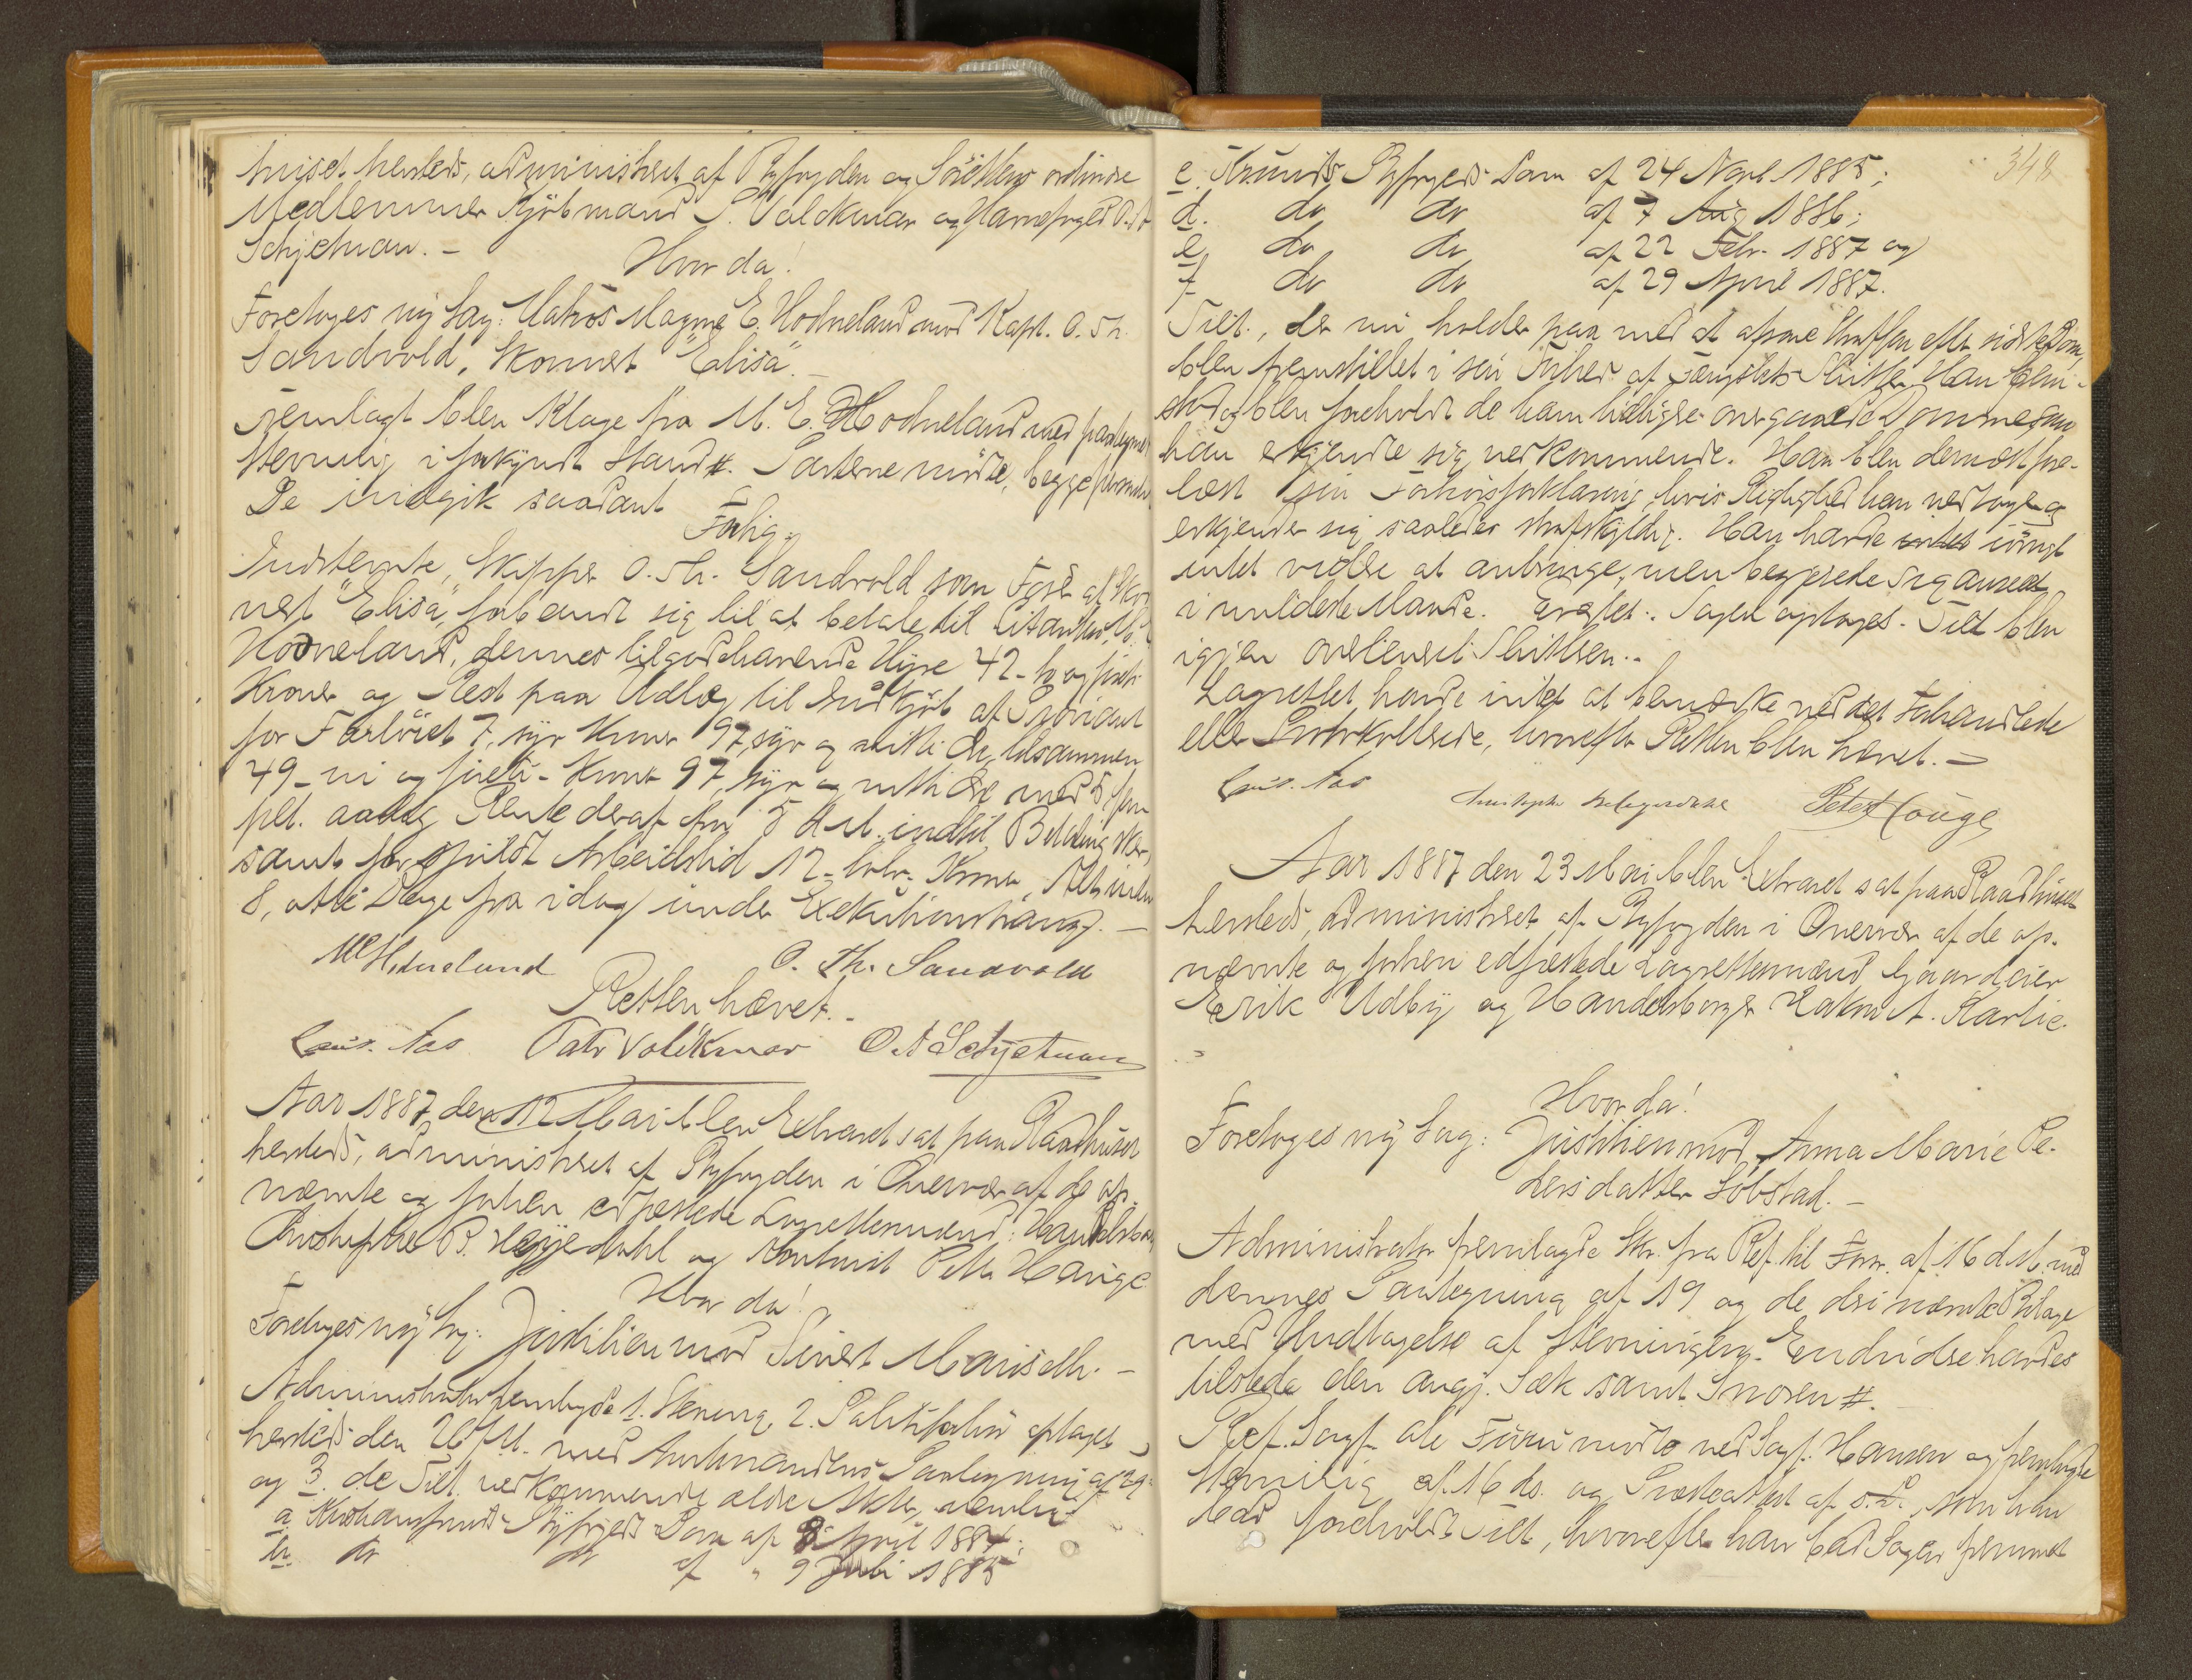 huset hersteds, administreret af Byfogden og Sørettens ordinære
Medlemmer Kjøbmand P. Volckmar og Havnefoged O. A.
Schjetnan. -
Hvor da!
Foretoges ny Sag: Matros Magne E. Hodneland mod Kapt. O. Th.
Sandvold, Skonnert "Elisa". -
Fremlagt blev Klage fra M. E. Hodneland med paategnet
Stevning i forkyndt Stand #. Parterne mødte, begge personlig.
De indgik saadant
Forlig.
Indstevnte, Skipper O. Th. Sandvold som Fører af Skon-
nert "Elisa", forbandt sig til at betale til Citanten, M. E.
Hodneland, dennes tilgodehavende Hyre 42 - to og førti
Kroner og Rest paa Udlæg til Indkjøb af Proviant
for Fartøiet 7, syv Kroner 97, syv og nitti Øre, tilsammen
49 - ni og førti - Kroner 97, syv og nitti Øre med 5, fem
pCt. aarlig Rente deraf fra 5 d. M. indtil Betaling sker,
samt for spildt Arbeidstid 12 - tolv - Kroner, Alt inden
8, otte Dage fra idag under Exekutionstvang. -
M E Hodneland O. Th. Sandvold
Retten hævet. -
Chris. Aas Patr Volckmar O A Schjetnan
Aar 1887 den 12 Mai blev Extraret sat paa Raadhuset
hersteds, administreret af Byfogden i Overvær af de op-
nævnte og forhen edfæstede Lagrettemænd: Handelsborger
Christopher B. Heyerdahl og Kontorist Peter Hauge
Hvor da!
Foretoges ny Sag: Justitien mod Sivert Mauseth. -
Administrator fremlagde 1. Stevning, 2. Politiforhør optaget
hersteds den 26 f. M. med Amtmandens Paategning af 29.
og 3. de Tilt. vedkommende ældre Akter, nemlig
a. Kristiansunds Byfogeds Dom af 8 April 1884;
b. do do af " 9 Juli 1885
348
c. Krsunds Byfogeds Dom af 24 Novb. 1885;
d. do do af 7 Aug 1886;
e do do af 22 Febr. 1887 og
f do do af 29 April 1887.
Tilt., der nu holder paa med at afsone Straffen efter sidste Dom,
blev fremstillet i sin Frihed af Fængslets Slutter. Han blev
 og blev foreholdt de ham tidligere overgaaede Domme som
han erkjendte sig vedkommende. Han blev dernæst fore-
læst sin Forhørsforklaring, hvis Rigtighed han vedtoger og
erkjender sig saaledes strafskyldig. Han havde intet iøvrigt
intet videre at anbringe, men begjærede sig anseet
i mildeste Maade. Eragtet: Sagen optages. Tilt blev
igjen overleveret Slutteren. -
Lagrettet havde intet at bemærke ved det Forhandlede
eller Protokollerede, hvorefter Retten blev hævet. -
Chris. Aas Christopher Heyerdahl Peter Hauge
Aar 1887 den 23 Mai blev Extraret sat paa Raadhuset
hersteds, administreret af Byfogden i Overvær af de op-
nævnte og forhen edfæstede Lagrettemænd Gaardeier
Erik Udby og Handelsborger Hakon A. Harlie.
Hvor da!
Foretoges ny Sag: Justitien mod Anna Marie Pe-
dersdatter Løbstad. -
Administrator fremlagde Skr. fra Ref. til Forr. af 16 d. M. med
dennes Paategning af 19 og de deri nævnte Bilage
med Undtagelse af Stevningen. Endvidere havdes
tilstede den angj. Sæk samt Snoren #.
Ref. Sagf. Ole Furu mødte ved Sagf. Hansen og fremlagde
Stevning af 16 ds. og Præsteattest af s. D., som han
bad foreholdt Tilt, hvorefter han bad Sagen fremmet